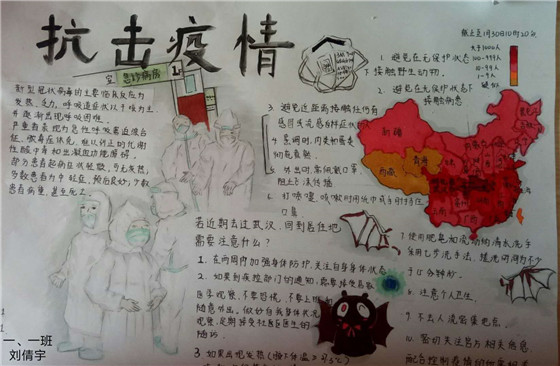 抗击疫情
截止至1月30日10时20分
急诊病房
新型冠状病毒的主要临床反应为
发热、乏力,呼吸道症状以干咳为主,
并逐渐出现呼吸困难,
严重者表现为急性呼吸窘迫综合
征、脓毒症休克、难以纠正的代谢
性酸中毒和出凝血功能障碍。
部分患者起病症状轻微,可无发热,
多数患者为中轻症,预后良好,少数
患者病重,甚至死亡
1. 避免在无保护状态
下接触野生动物。
2. 避免在无保护状态下
接触病患
3. 避免近距离接触任何有
感冒或流感样症状
4. 烹调时,肉类和蛋类
彻底煮熟。
5. 外出时,佩戴口罩
6. 打喷嚏、咳嗽时用纸巾或手肘捂住
口鼻
7. 使用肥皂和流动的清水洗手
采用七步洗手法,揉搓时间不少
于15分钟
8. 注意个人卫生
9. 不去人流密集地点
10. 密切关注官方相关信息
配合控制疫情
新疆
西藏
青海
若近期去过武汉,回到居住地
需要注意什么?
1. 在两周内加强身体防护,关注自身身体状态
2. 如果到疾控部门的通知,需要接受居家
医学观察,不要恐慌,不要上班
随意外出,做好自我身体状况
观察,定期接受社区医生的
随访
3. 如果出现发热
一、一班
刘倩宇